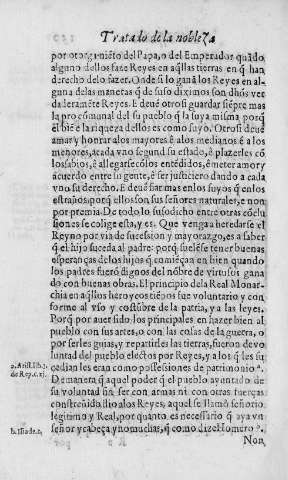 Tratado de la nobleza
por otorgamiẽto del Papa, o del Emperador quãdo
alguno dellos faze Reyes en aq̃llas tierras en q̃ han
derecho de lo fazer. Onde si lo ganã los Reyes en al-
guna de las maneras q̃ de suso diximos son dhũs ver
daderamẽte Reyes. E deuẽ otrosi guardar siẽpre mas
la pro comunal del su pueblo q̃ la suya misma porq̃
el biẽ e la riqueza dellos es como suyo. Otrosi deuẽ
amar y honrar a los mayores ẽ a los medianos ẽ a los
menores, a cada vno segund su estado, ẽ plazerles cõ
los sabios, ẽ allegarse cõ los entẽdidos, ẽ meter amor y
acuerdo entre su gente, ẽ ser justiciero dando a cada
vno su derecho. E deuẽ fiar mas en los suyos q̃ en los
estraños, porq̃ ellos son sus señores naturales, e non
por premia. De todo lo susodicho entre otras cõclu
siones se colige esta, y es. Que venga a heredarse el
Reyno por via de sucession, y mayorazgo, es a saber
q̃ el hijo suceda al padre: porq̃ suelẽse tener buenas
esperanças de los hijos q̃ comiẽçan en bien quando
los padres fuerõ dignos del nõbre de virtuosos gana
do con buenas obras. El principio de la Real Monar-
chia en aq̃llos heroycos tiẽpos fue voluntario y con
forme al vso y costũbre de la patria, y a las leyes.
Porq̃ por auer sido los principales en hazer bien al
pueblo con sus artes, o con las cosas de la guerra, o
por serles guias, y repartirles las tierras, fueron de vo
luntad del pueblo electos por Reyes, y a los q̃ les su
cedian les eran como possessiones de patrimonio ᵃ.
De manera q̃ aquel poder q̃ el pueblo ayuntado de
su voluntad sin ser con armas ni con otras fuerças
constreñido dio a los Reyes, aquel se llamò señorio
legitimo y Real, por quanto es necessario q̃ aya vn
señor y cabeça y no muchas, q̃ como dize Homero ᵇ.
Non
a. Arist. lib. 3.
de Rep. c. 11.
b. Iliad. 2.